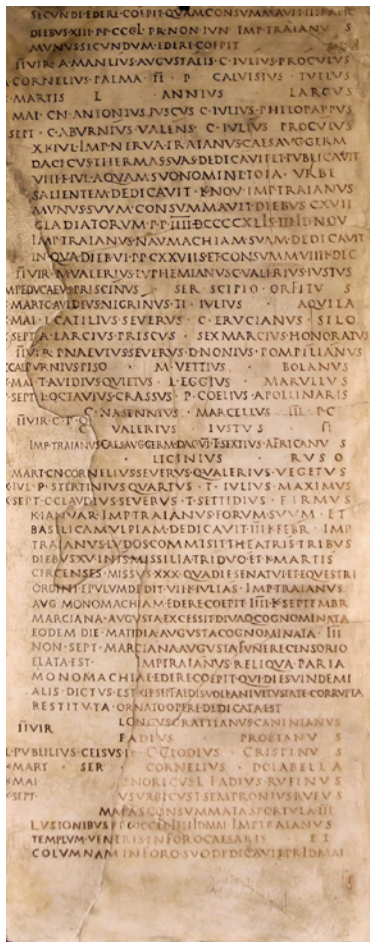 SECUNDI·EDERE·COEPIT·QVAM·CONSVMMAVIT·III
DIEBVS·XIII·PP·CCCL·PR·NON·IVN·IMP·TRAIANVS
MVNVS·SECVNDVM·EDERE·COEPIT
IIVIR·A·MANLIVS·AVGVSTALIS·C·IVLIVS·PROCVLVS
A·CORNELIVS·PALMA·II·P·CALVISIVS·TVLLVS
MARTIS L·ANNIVS LARGVS
MAI·CN·ANTONIVS·FVSCVS·C·IVLIVS·PHILOPAPPVS
SEPT·C·ABVRNIVS·VALENS·C·IVLIVS PROCVLVS
X·K·IVL·IMP·NERVA·TRAIANVS·CAES·AVG·GERM
DACICVS·THERMAS·SVAS·DEDICAVIT·ET·PVBLICAVIT
VIII·K·IVL·AQVAM·SVO·NOMINE·TOTA·VRBE
SALIENTEM·DEDICAVIT·K·NOV·IMP·TRAIANVS
MVNVS·SVVM·CONSVMMAVIT·DIEBVS·CXVII
GLADIATORVM·PP·IIII·DCCCCXLI·S·III·ID·NOV
IMP·TRAIANVS·NAVMACHIAM·SVAM·DEDICAVIT
IN·QVA·DIEB·VI·PP·CXXVII·S·ET·CONSVMM·VIII·K·DEC
IIVIR·M·VALERIVS·EVPHEMIANVS·C·VALERIVS·IVSTVS
PRISCINVS · SER·SCIPIO·ORFITVS
MART·C·AVIDIVS·NIGRINVS·TI·IVLIVS·AQVILA
MAI·L·CATILIVS·SEVERVS·C·ERVCIANVS·SILO
SEPT·A·LARCIVS·PRISCVS·SEX·MARCIVS·HONORATVS
IIVIR·P·NAEVIVS·SEVERVS·D·NONIVS·POMPILIANVS
CALPVRNIVS·PISO · M·VETTIVS · BOLANVS
MAI·T·AVIDIVS·QVIETVS·L·EGGIVS·MARVLLVS
SEPT·L·OCTAVIVS·CRASSVS·P·COELIVS·APOLLINARIS
C·NASENNIVS·MARCELLVS·III·PC
IIVIR·C·P·Q
C·VALERIVS·IVSTVS·II
IMP·TRAIANVS·CAES·AVG·GERM·DAC·VI·T·SEXTIVS·AFRICANVS
· LICINIVS · RVSO
MART·CN·CORNELIVS·SEVERVS·Q·VALERIVS·VEGETVS
K·IVL·P·STERTINIVS·QVARTVS·T·IVLIVS·MAXIMVS
K·SEPT·C·CLAVDIVS·SEVERVS·T·SETTIDIVS·FIRMVS
K·IANVAR·IMP·TRAIANVS·FORVM·SVVM·ET
BASILICAM·VLPIAM·DEDICAVIT·III·K·FEBR·IMP
TRAIANVS·LVDOS·COMMISIT·THEATRIS·TRIBVS
DIEBVS·XV·IN·TS·MISSILIA·TRIDVO·ET·K·MARTIS
CIRCENSES·MISSVS·XXX·QVA·DIE·SENATVI·ET·EQVESTRI
ORDINI·EPVLVM·DEDIT·VIII·K·IVLIAS·IMP·TRAIANVS
AVG·MONOMACHIAM·EDERE·COEPIT·IIII·K·SEPTEMBR
MARCIANA·AVGVSTA·EXCESSIT·DIVAQ·COGNOMINATA
EODEM·DIE·MATIDIA·AVGVSTA·COGNOMINATA·III
NON·SEPT·MARCIANA·AVGVSTA·FVNERE·CENSORIO
ELATA·EST· IMP·TRAIANVS·RELIQVA·PARIA
MONOMACHIAE·EDERE·COEPIT·QVI·DIES·VINDEMI
ALIS·DICTVS·EST·XII·AEDIS·VOLKANI·VETVSTATE·CORRVPTA
RESTITVTA·ORNATO·OPERE·DEDICATA·EST
LONGVS·GRATTIANVS·CANINIANVS
IIVIR
FADIVS · PROETANVS
L·PVBLILIVS·CELSVS·II·C·CLODIVS·CRISTINVS
K·MART · SER · CORNELIVS · DOLABELLA
K·MAI· NORICVS·L·FADIVS·RVFINVS
K·SEPT· VS·VRBICVS·T·SEMPRONIVS·RVFVS
MAPPAS·CONSVMMATA·SPORTVLA·III
LVSIONIBVS·PP IMP·TRAIANVS
TEMPLVM·VENERIS·IN·FORO·CAESARIS·ET
COLVMNAM·IN·FORO·SVO·DEDICAVIT·PR·ID·MAI